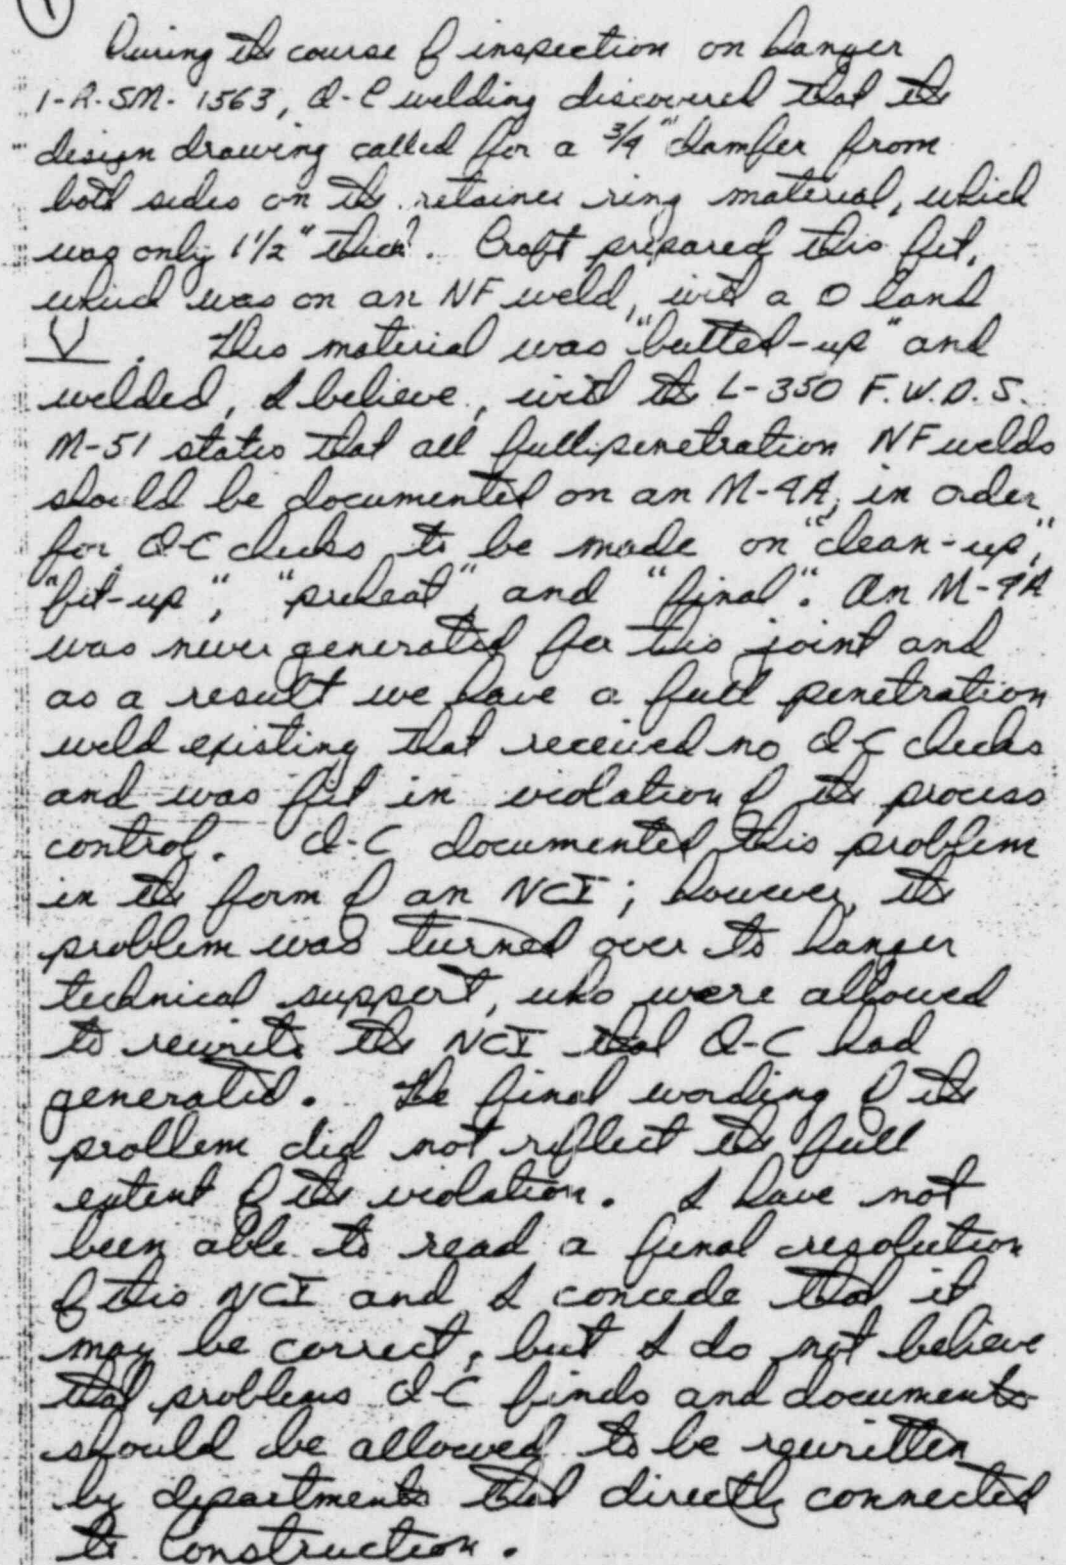 1
During the course of inspection on hanger
1-R-SM-1563, Q-C welding discovered that the
design drawing called for a 3/4" chamfer from
both sides on the retainer ring material, which
was only 1 1/2" thick. Craft prepared this fit,
which was on an NF weld, with a 0 land
. This material was "butted-up" and
welded, I believe, with the L-350 F.W.D.S.
M-51 states that all full penetration NF welds
should be documented on an M-4A, in order
for Q-C checks to be made on "clean-up",
"fit-up", "preheat", and "final". An M-4A
was never generated for this joint and
as a result we have a full penetration
weld existing that received no Q-C checks
and was fit in violation of the process
control. Q-C documented this problem
in the form of an NCI; however, the
problem was turned over to hanger
technical support, who were allowed
to rewrite the NCI that Q-C had
generated. The final wording of the
problem did not reflect the full
extent of the violation. I have not
been able to read a final resolution
of this NCI and I concede that it
may be correct, but I do not believe
that problems Q-C finds and documents
should be allowed to be rewritten
by departments that directly connected
to construction.